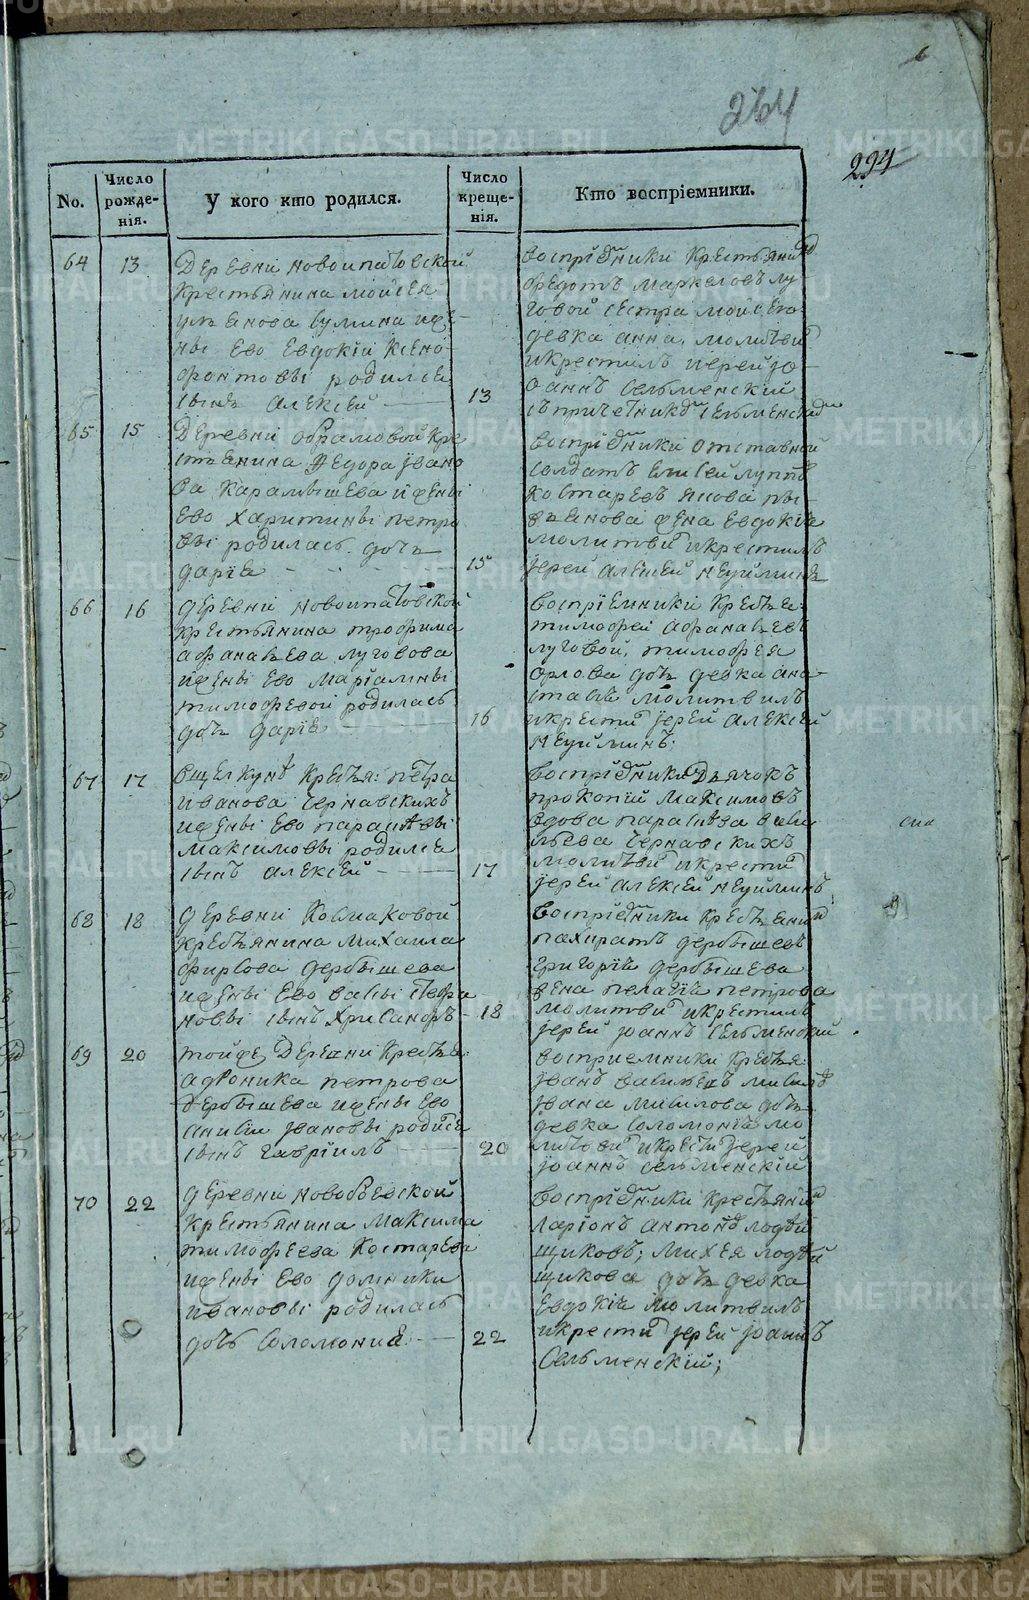 264
294
No.
Число рожде-
нія.
У кого кто родился.
Число креще-
нія.
Кто воспріемники.
64 13
деревни новоипатовской
крестьянина мойсея
сумина иже-
ны ево евдокіи ксено
фонтовы родился
сынъ алексей
13
воспріемники крестьянинъ
федотъ маркеловъ лу
говой сестра мойсея
девка анна, молитвилъ
икрестилъ иерей іо
аннъ сельменскій
съ причетникомъ сельменскимъ
65 15
деревни абрамовой кре
стьянина федора ивано
ва карамышева ижены
ево харитины петро
вы родилась дочь
дарія
15
воспріемники отставной
солдатъ елисей
костаревъ якова
жена евдокія
молитвилъ икрестилъ
іерей алексей неуйминъ
66 16
деревни новоипатовской
крестьянина трофима
афанасьева луговова
ижены ево маріамны
тимофевой родилась
дочь дарія
16
воспріемники крестья:
тимофей афанасьевъ
луговой, тимофея
орлова дочь девка ана
стасія молитвилъ
икрестилъ іерей алексей
неуйминъ:
67 17
вщелкунѣ крестья: петра
иванова чернавскихъ
ижены ево параскевы
максимовы родился
сынъ алексей
17
воспріемники дьячокъ
прокопій максимовъ
вдова параскева васи
льева чернавскихъ
молитвилъ икрестилъ
іерей алексей неуйминъ
68 18
деревни космаковой
крестьянина михаила
фирсова дербышева
ижены ево вассы стефа
новы сынъ хрисанфъ
18
воспріемники крестьянинъ
дербышевъ
григорія дербышева
жена пелагія петрова
молитвилъ икрестилъ
іерей іоаннъ сельменскій
69 20
тойже деревни крестья:
адроника петрова
дербышева ижены ево
анисіи ивановы родился
сынъ гавріилъ
20
восприемники крестья:
иванъ васильевъ
ивана дочь
девка соломонія мо
литвилъ икрестилъ іерей
іоаннъ сельменскій
70 22
деревни новобоевской
крестьянина максима
тимофеева костарева
ижены ево домники
ивановы родилась
дочь соломонія
22
воспріемники крестьянинъ
ларіонъ антоновъ лодей
щиковъ, михея лодей
щикова дочь девка
евдокія молитвилъ
икрестилъ іерей іоаннъ
сельменскій;
METRIKI.GASO-URAL.RU